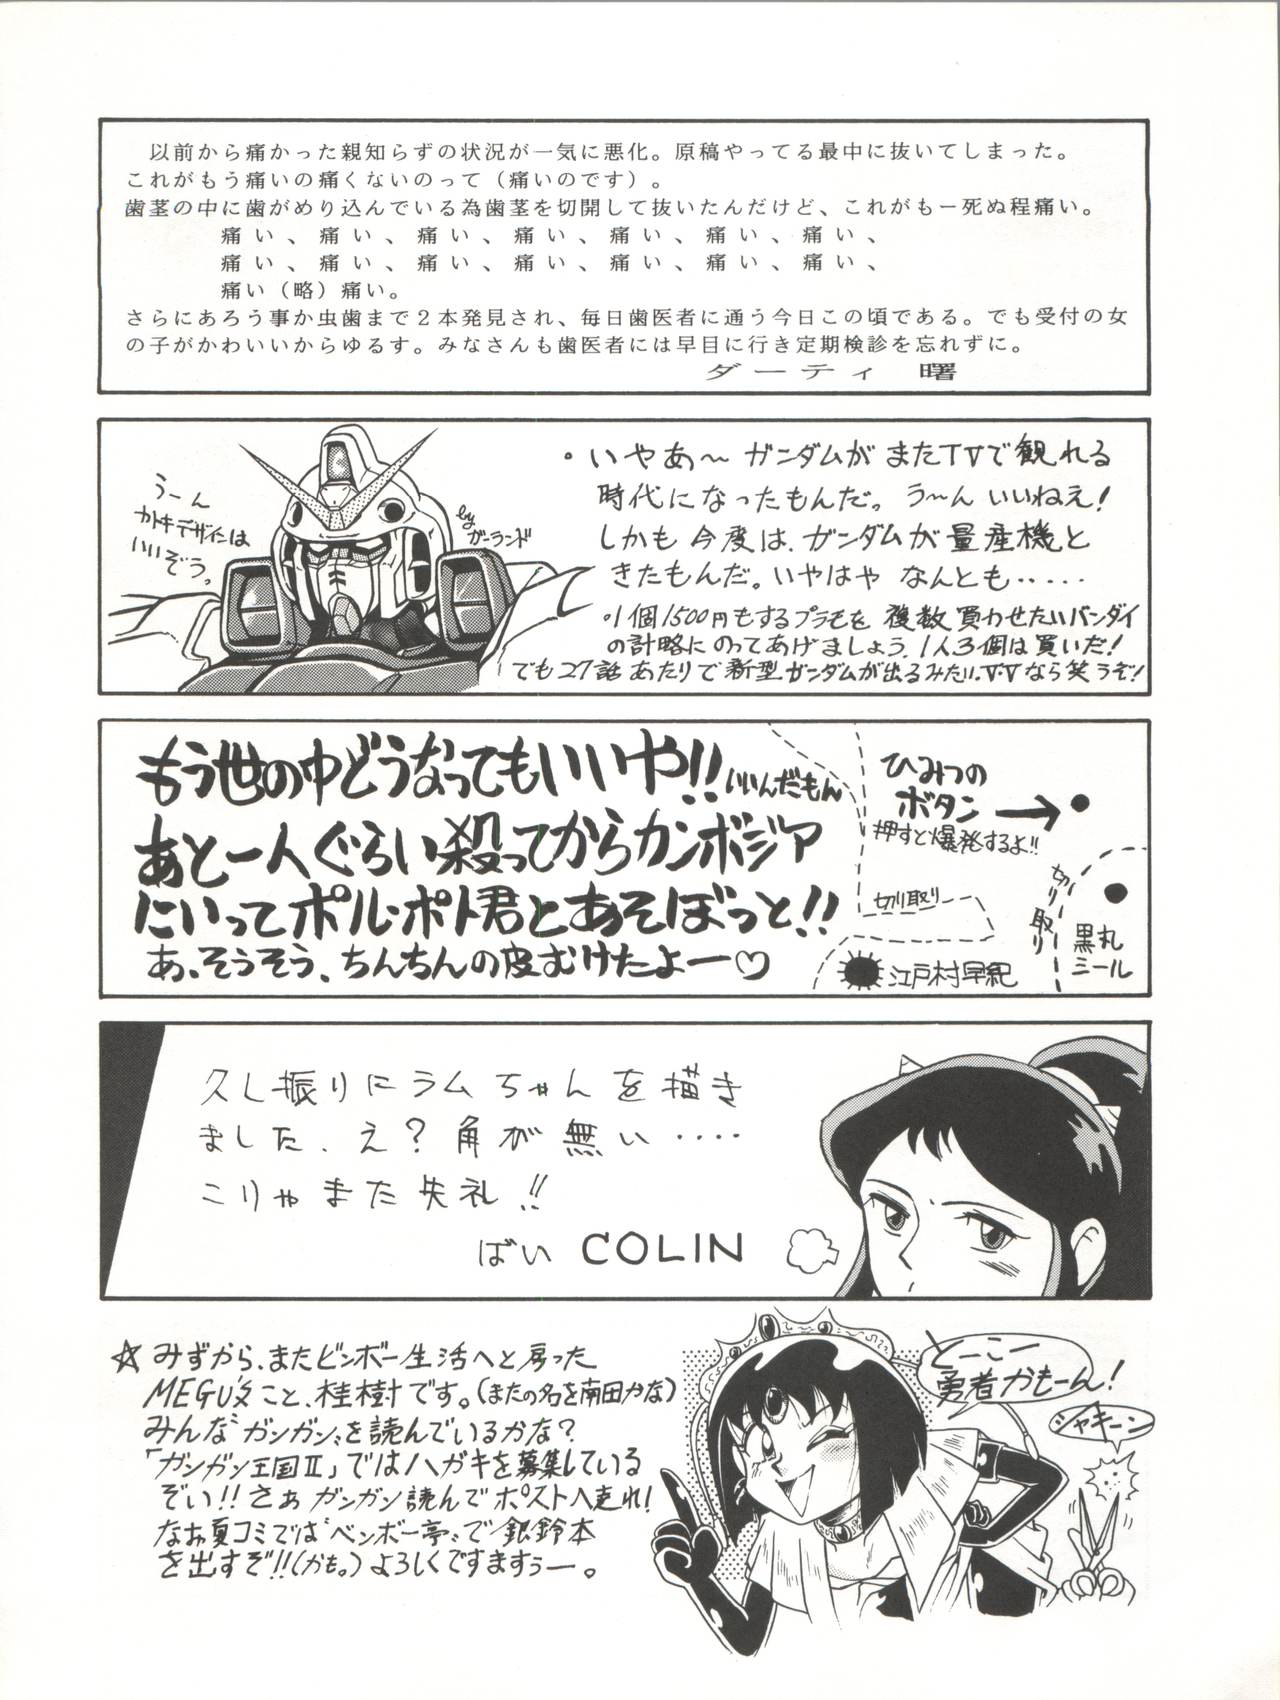 以前から痛かった親知らずの状況が一気に悪化。原稿やってる最中に抜いてしまった。
これがもう痛いの痛くないのって（痛いのです）。
歯茎の中に歯がめり込んでいる為歯茎を切開して抜いたんだけど、これがもー死ぬ程痛い。
痛い、痛い、痛い、痛い、痛い、痛い、痛い、
痛い、痛い、痛い、痛い、痛い、痛い、痛い、
痛い（略）痛い。
さらにあろう事か虫歯まで２本発見され、毎日歯医者に通う今日この頃である。でも受付の女
の子がかわいいからゆるす。みなさんも歯医者には早目に行き定期検診を忘れずに。
ダーティ　曙
うーん
カトキデザインは
いいぞう。
by
ガーランド
・いやあ〜ガンダムがまたTVで観れる
時代になったもんだ。う〜んいいねえ！
しかも今度は、ガンダムが量産機と
きたもんだ。いやはやなんとも・・・・・
・1個1500円もするプラモを複数買わせたいバンダイ
の計略にのってあげましょう。1人3個は買いだ！
でも27話あたりで新型ガンダムが出るみたい。V・Vなら笑うぞ！
もう世の中どうなってもいいや!!いいんだもん
あと一人ぐらい殺ってからカンボジア
にいってポル・ポト君とあそぼっと!!
あ、そうそう、ちんちんの皮むけたよー♡
ひみつの
ボタン→●
押すと爆発するよ!!
切り取り
切り取り
黒丸
ミール
江戸村早紀
久し振りにラムちゃんを描き
ました、え？角が無い・・・・
こりゃまた失礼!!
ばい COLIN
☆みずから、またビンボー生活へと戻った
MEGU'Sこと、桂樹です。（またの名を南田かな）
みんな〝ガンガン〟を読んでいるかな？
「ガンガン王国Ⅱ」ではハガキを募集している
ぞい!!さぁガンガン読んでポストへ走れ！
なお夏コミでは〝ベンボー亭〟で銀鈴本
を出すぞ!!（かも。）よろしくですますぅー。
とーこー
勇者かもーん！
シャキーン